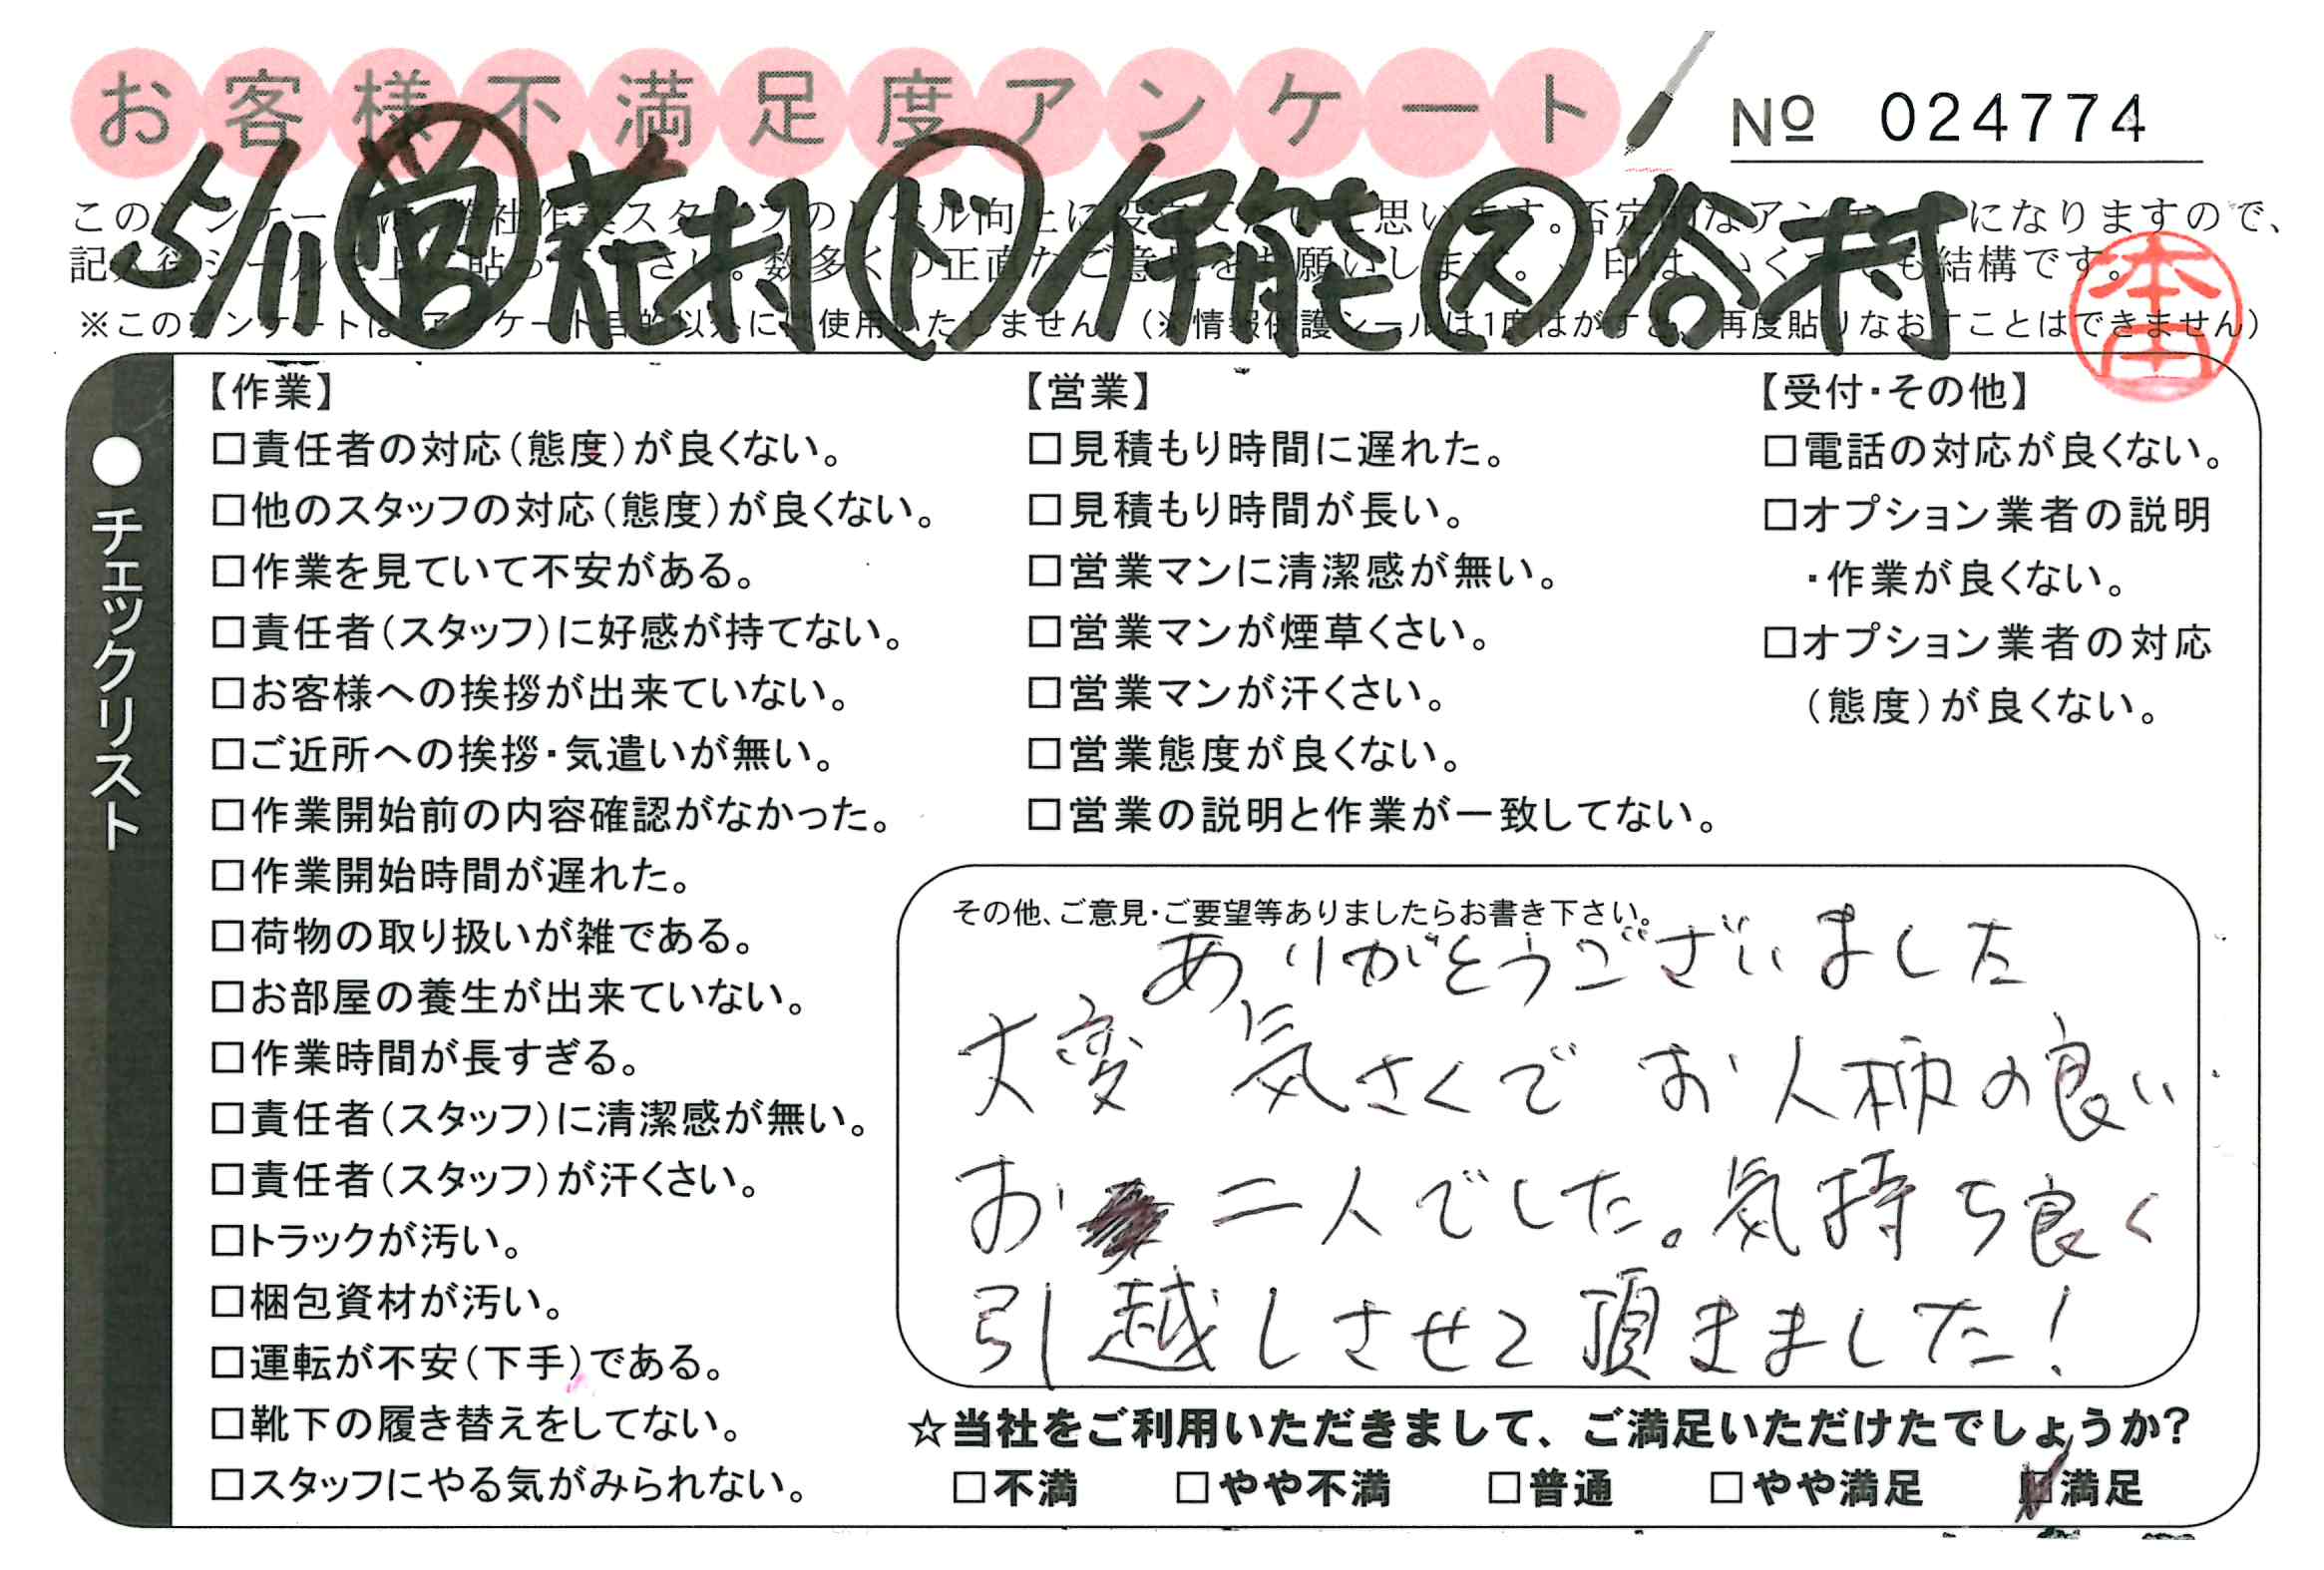 お客様不満足度アンケート
№ 024774
5/11 ㊂営 花村 ド 伊能 ス 谷村
記入後シール 上 貼 さい。数多くの正直なご意見をお願いします。 印は、いくつでも結構です。
※このアンケートは、アンケート目的以外には使用いたしません。(※情報保護シールは1度はがすと、再度貼りなおすことはできません)
本田
●チェックリスト
【作業】
□責任者の対応(態度)が良くない。
□他のスタッフの対応(態度)が良くない。
□作業を見ていて不安がある。
□責任者(スタッフ)に好感が持てない。
□お客様への挨拶が出来ていない。
□ご近所への挨拶・気遣いが無い。
□作業開始前の内容確認がなかった。
□作業開始時間が遅れた。
□荷物の取り扱いが雑である。
□お部屋の養生が出来ていない。
□作業時間が長すぎる。
□責任者(スタッフ)に清潔感が無い。
□責任者(スタッフ)が汗くさい。
□トラックが汚い。
□梱包資材が汚い。
□運転が不安(下手)である。
□靴下の履き替えをしてない。
□スタッフにやる気がみられない。
【営業】
□見積もり時間に遅れた。
□見積もり時間が長い。
□営業マンに清潔感が無い。
□営業マンが煙草くさい。
□営業マンが汗くさい。
□営業態度が良くない。
□営業の説明と作業が一致してない。
【受付・その他】
□電話の対応が良くない。
□オプション業者の説明
・作業が良くない。
□オプション業者の対応
(態度)が良くない。
その他、ご意見・ご要望等ありましたらお書き下さい。
ありがとうございました
大変 気さくで お人柄の良い
お二人でした。気持ち良く
引越しさせて頂きました!
☆当社をご利用いただきまして、ご満足いただけたでしょうか?
□不満 □やや不満 □普通 □やや満足 ☑満足